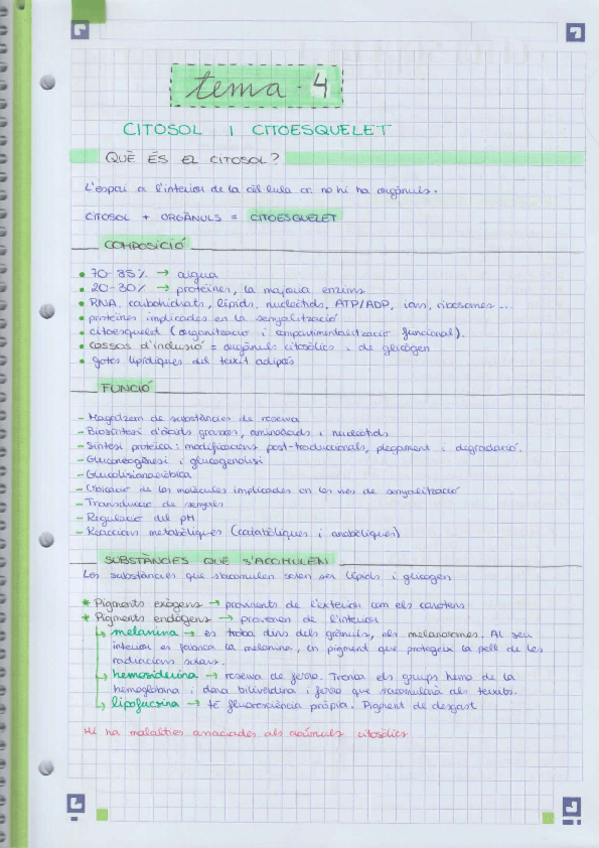 tema - 4
CITOSOL I CITOESQUELET
QUÈ ÉS EL CITOSOL?
L'espai a l'interior de la cèl·lula on no hi ha orgànuls.
CITOSOL + ORGÀNULS = CITOESQUELET
COMPOSICIÓ
• 70-85% → aigua
• 20-30% → proteïnes, la majoria enzims
• RNA, carbohidrats, lípids, nucleòtids, ATP/ADP, ions, ribosomes...
• proteïnes implicades en la senyalització
• citoesquelet (organització i compartimentalització funcional).
• cossos d'inclusió = orgànuls citosòlics i de glicògen
• gotes lipídiques del teixit adipós
FUNCIÓ
- Magatzem de substàncies de reserva
- Biosíntesi d'àcids grassos, aminoàcids i nucleòtids
- Síntesi proteica: modificacions post-traduccionals, plegament i degradació.
- Gluconeogènesi i glucogenolisi
- Glucolisi anaeròbica
- Ubicació de les molècules implicades en les vies de senyalització
- Transducció de senyals
- Regulació del pH
- Reaccions metabòliques (catabòliques i anabòliques)
SUBSTÀNCIES QUE S'ACUMULEN
Les substàncies que s'acumulen solen ser lípids i glicogen
* Pigments exògens → provinents de l'exterior com els carotens
* Pigments endògens → provenen de l'interior
melanina → es troba dins dels grànuls, els melanosomes. Al seu
interior es fabrica la melanina, un pigment que protegeix la pell de les
radiacions solars.
hemosiderina → reserva de ferro. Trenca els grups hemo de la
hemoglobina i dona biliverdina i ferro que s'acumularà als teixits.
lipofucsina → té fluorescència pròpia. Pigment de desgast
Hi ha malalties associades als acúmuls citosòlics